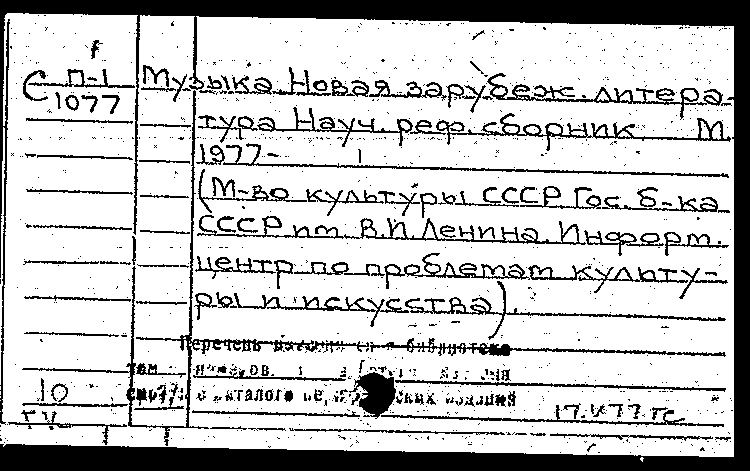 С П-1
1077
Музыка. Новая зарубеж. литера-
тура Науч. реф. сборник М.
1977-
(М-во культуры СССР. Гос. б-ка
СССР им. В.И. Ленина. Информ.
центр по проблемам культу-
ры и искусства).
Перечень библиотеке
каталоге изданий
10
17.V.77.